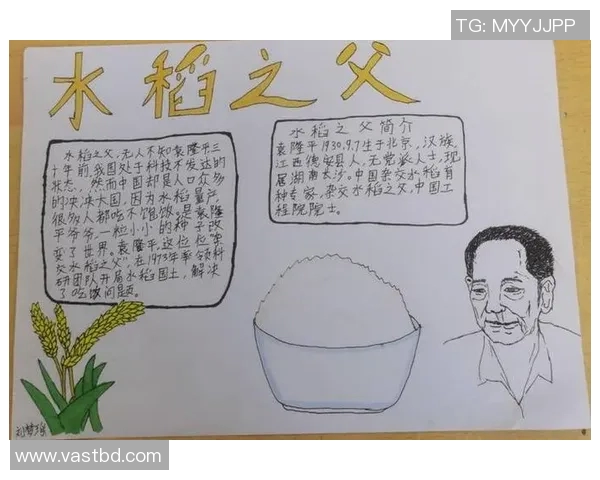 TG: MYYJJPP
水稻之父
水稻之父，无人不知袁隆平三
十年前，我国处于科技不发达的
状态，然而中国却是人口众多
的泱泱大国，因为水稻量产，
很多人都吃不饱饭。是袁隆
平爷爷，一粒小小的种子改
变了世界。袁隆平，这位位"杂
交水稻之父"，在1973年率领科
研团队开启水稻国土，解决
了吃饭问题。
水稻之父简介
袁隆平1930.9.7生于北京，汉族，
江西德安县人，无党派人士，现
居湖南长沙。中国杂交水稻育
种专家，杂交水稻之父，中国工
程院院士。
www.vastbd.com